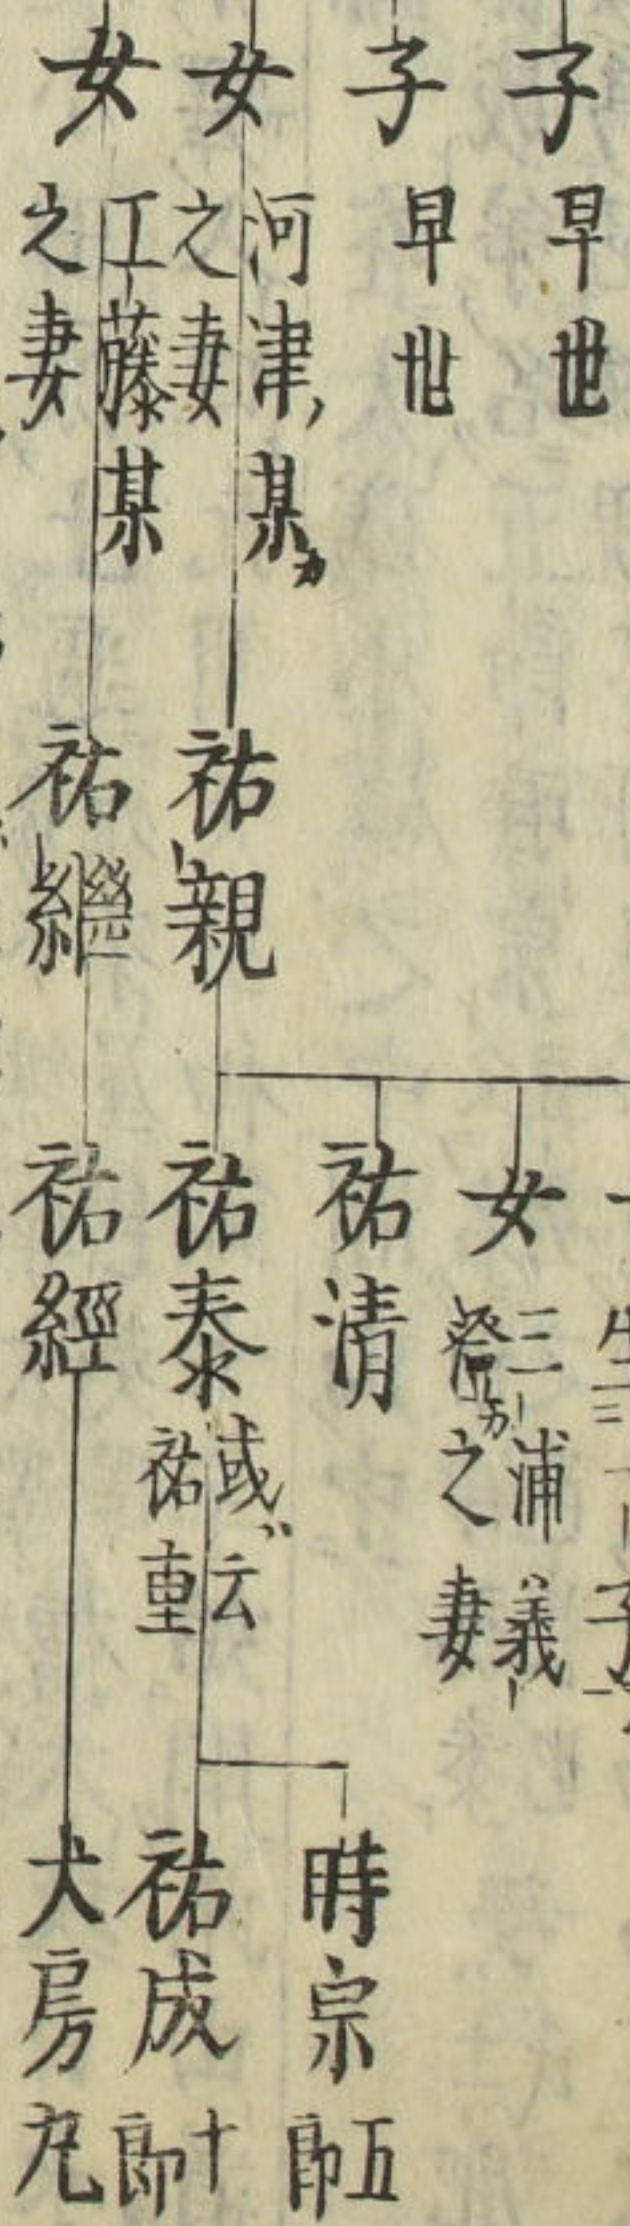 子 早世
子 早世
女 河津某カ之妻
女 江藤某之妻
祐親
祐繼
女 三浦義澄カ之妻
祐清
祐泰 或云祐重
祐經
時宗 五郎
祐成 十郎
犬房丸